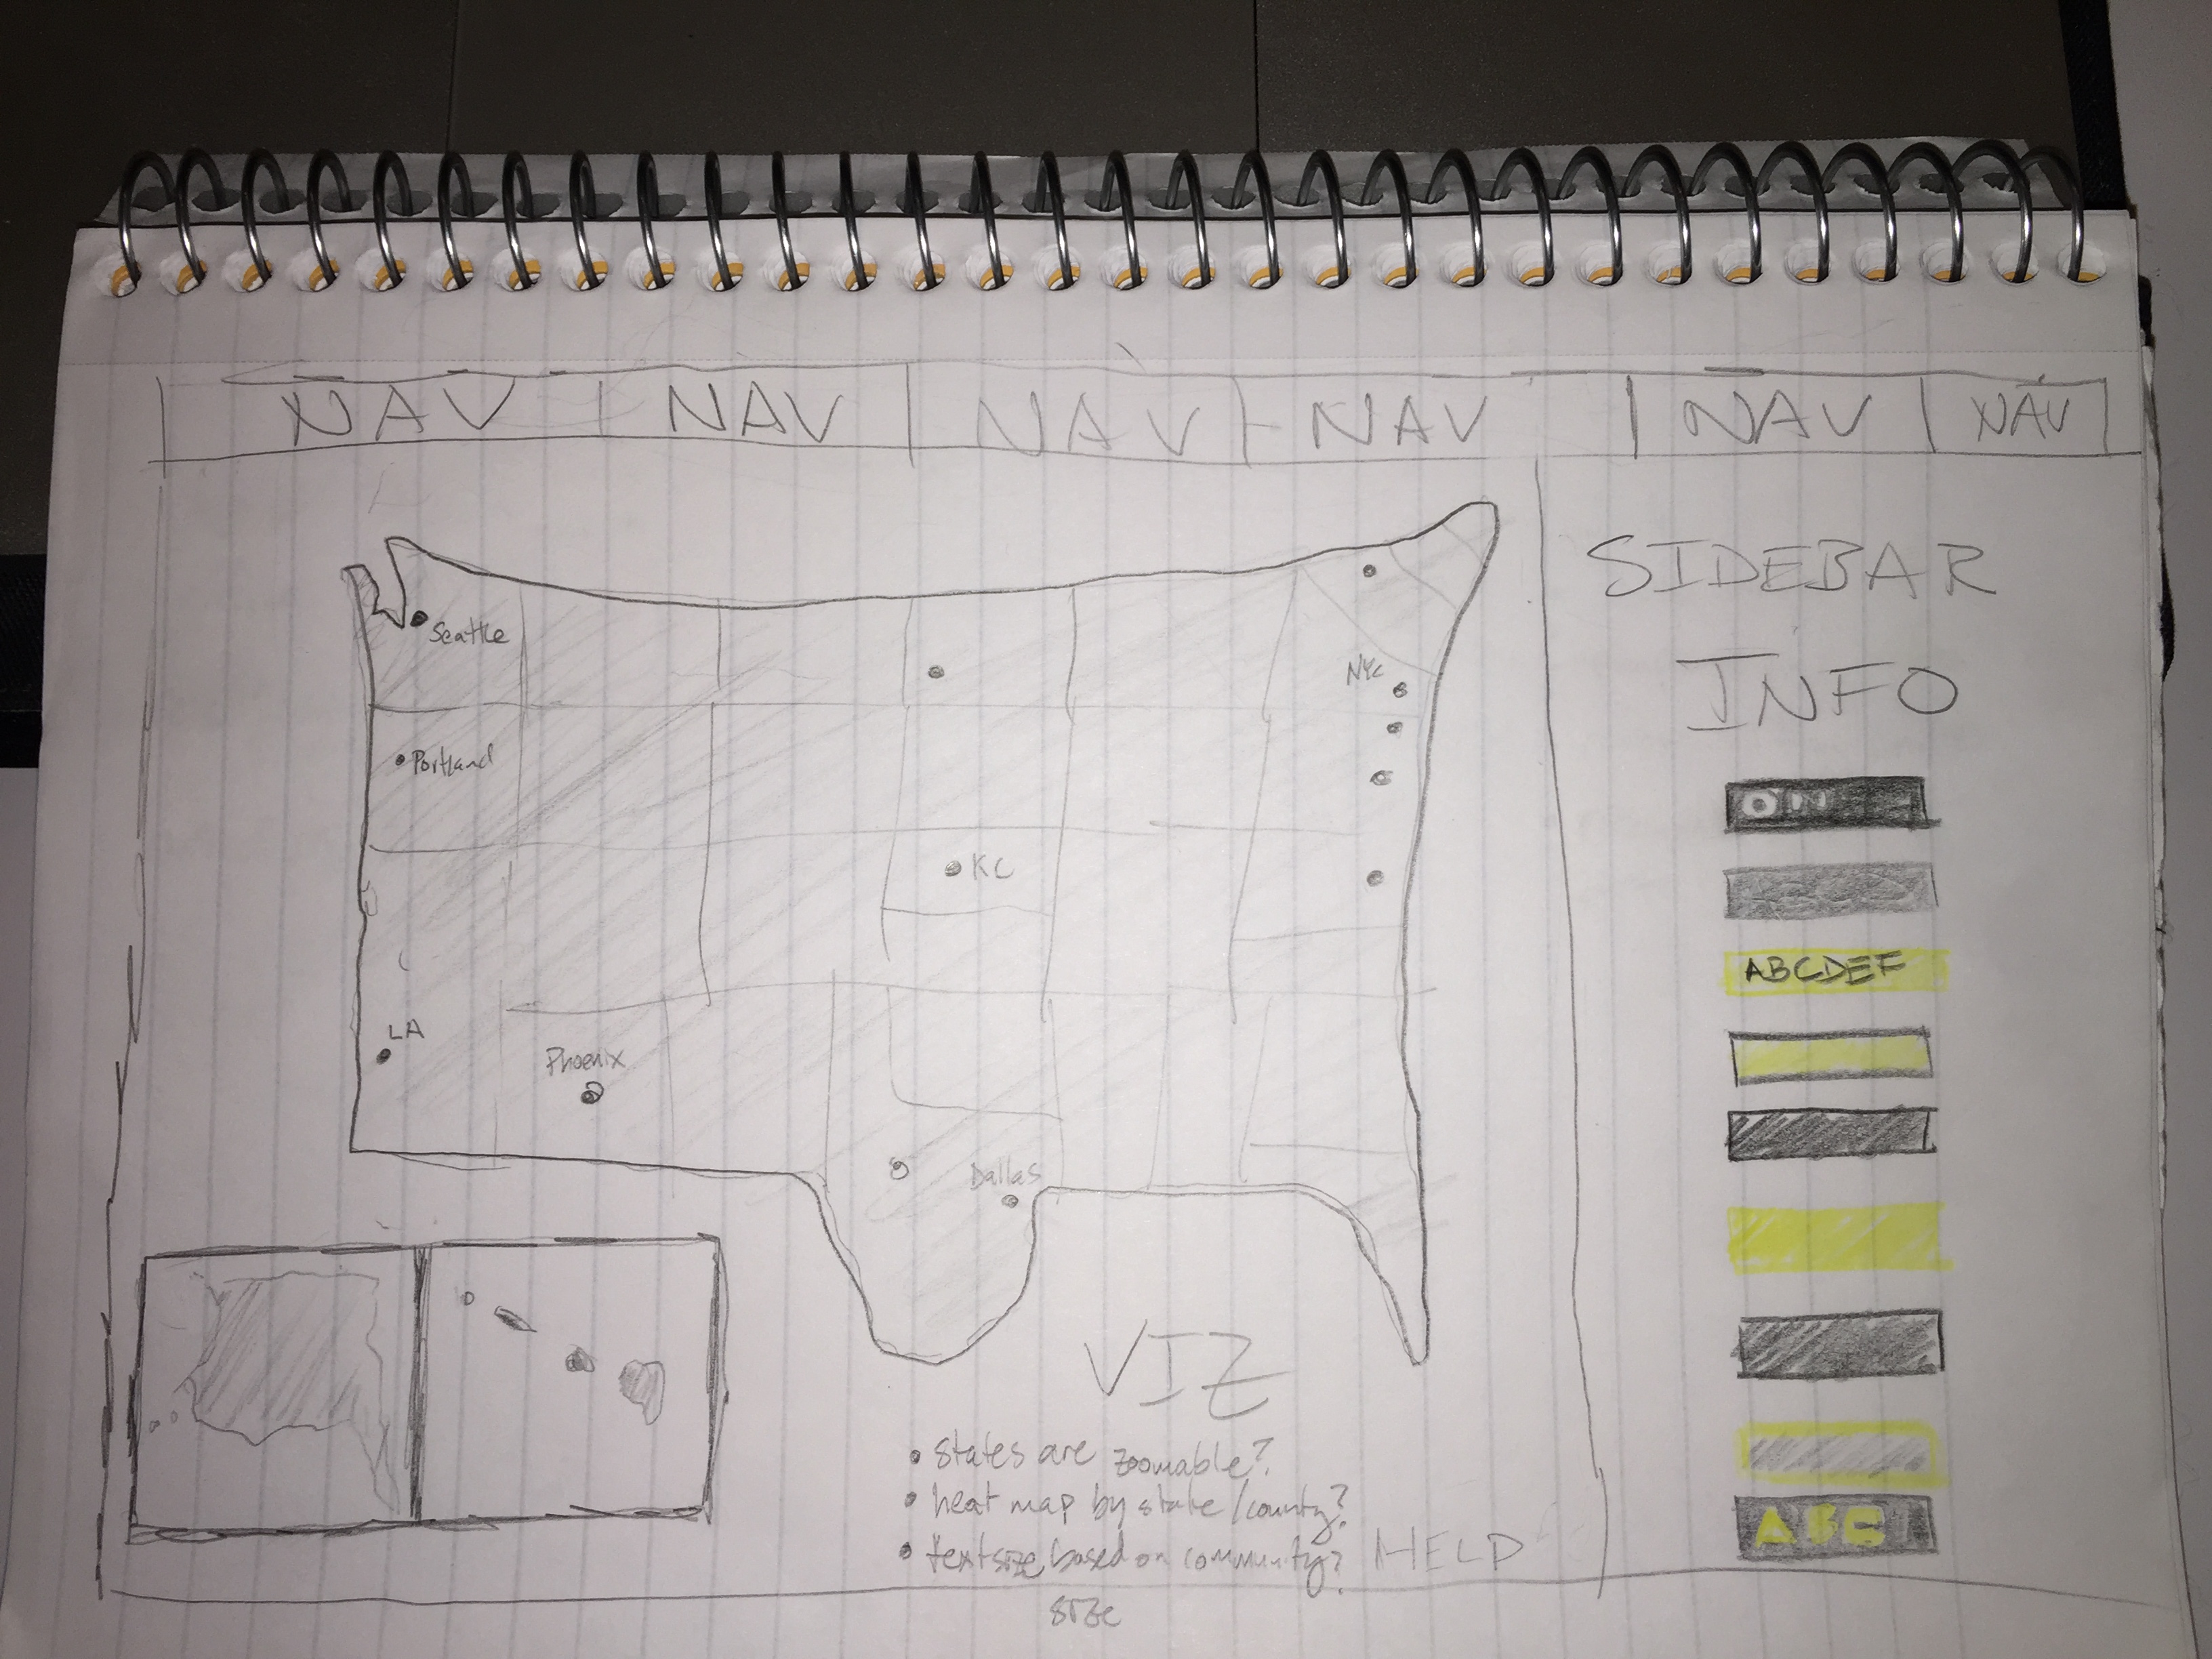 NAV | NAV | NAV | NAV | NAV | NAV
Seattle
Portland
LA
Phoenix
KC
Dallas
NYC
VIZ
• states are zoomable?
• heat map by state/county?
• text size based on community?
size
SIDEBAR
INFO
ABCDEF
ABC